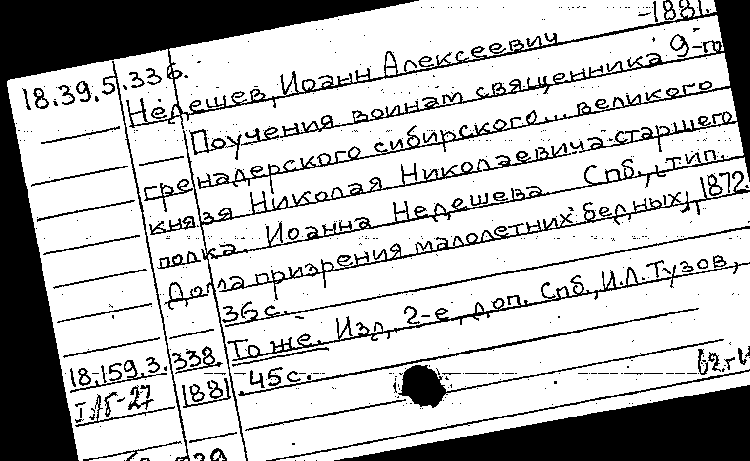 -1881.
18.39.5.336.
Недешев, Иоанн Алексеевич
Поучения воинам священника 9-го
гренадерского сибирского... великого
князя Николая Николаевича старшего
полка. Иоанна Недешева. Спб., тип.
Дома призрения малолетних бедных, 1872
36 с.
18.159.3.338. То же. Изд. 2-е, доп. Спб., И.Л. Тузов,
1881. 45 с.